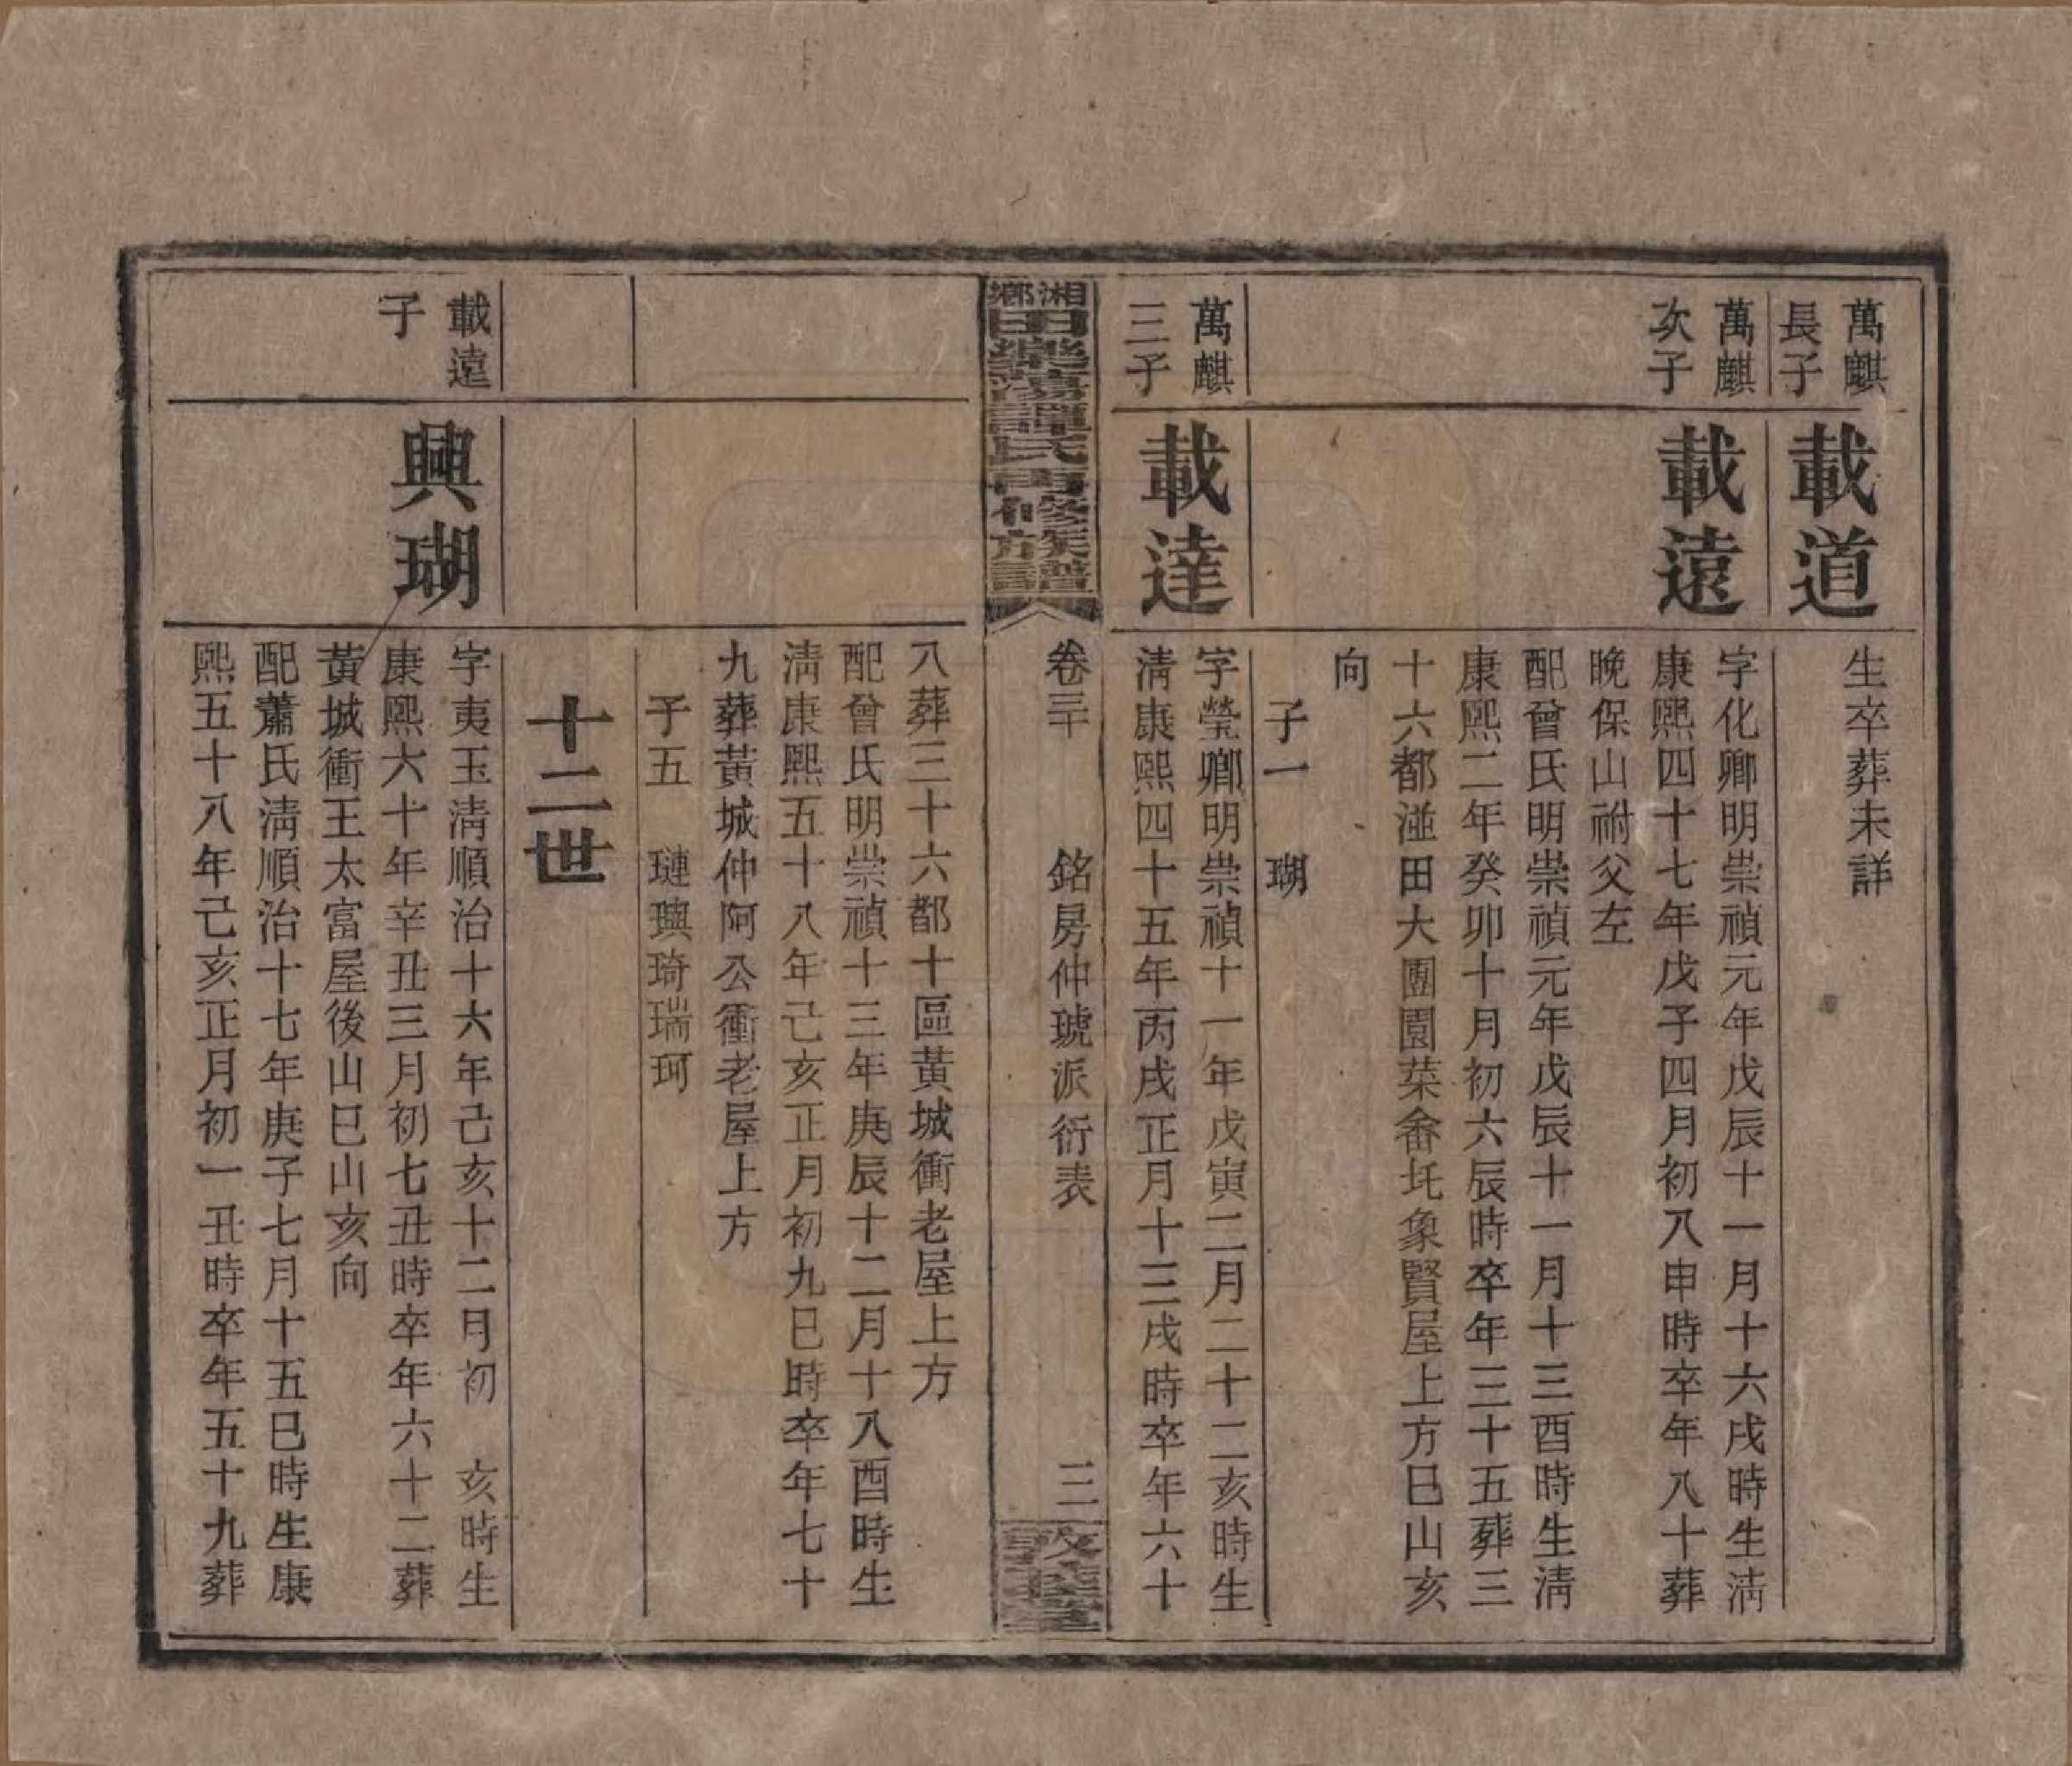 萬麒
長子
載道
生卒葬未詳
萬麒
次子
載遠
字化卿明崇禎元年戊辰十一月十六戌時生淸
康熙四十七年戊子四月初八申時卒年八十葬
晚保山祔父左
配曾氏明崇禎元年戊辰十一月十三酉時生淸
康熙二年癸卯十月初六辰時卒年三十五葬三
十六都湴田大團園菜畬圫象賢屋上方巳山亥
向
子一　瑚
萬麒
三子
載達
字瑩卿明崇禎十一年戊寅二月二十二亥時生
淸康熙四十五年丙戌正月十三戌時卒年六十
湘鄉田心滎陽譚氏再修族譜
卷三十　銘房仲琥派衍表　三
敦義堂
八葬三十六都十區黃城衝老屋上方
配曾氏明崇禎十三年庚辰十二月十八酉時生
淸康熙五十八年己亥正月初九巳時卒年七十
九葬黃城仲阿公衝老屋上方
子五　璉璵琦瑞珂
十二世
載遠
子
興瑚
字夷玉淸順治十六年己亥十二月初　亥時生
康熙六十年辛丑三月初七丑時卒年六十二葬
黃城衝王太富屋後山巳山亥向
配蕭氏淸順治十七年庚子七月十五巳時生康
熙五十八年己亥正月初一丑時卒年五十九葬